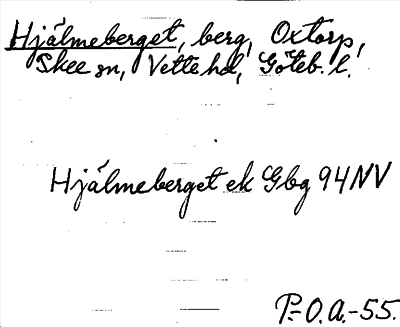 Hjälmeberget, berg, Oxtorp,
Skee sn, Vette hd, Göteb. l.
Hjälmeberget ek Gbg 94NV
P.-O.A.-55.